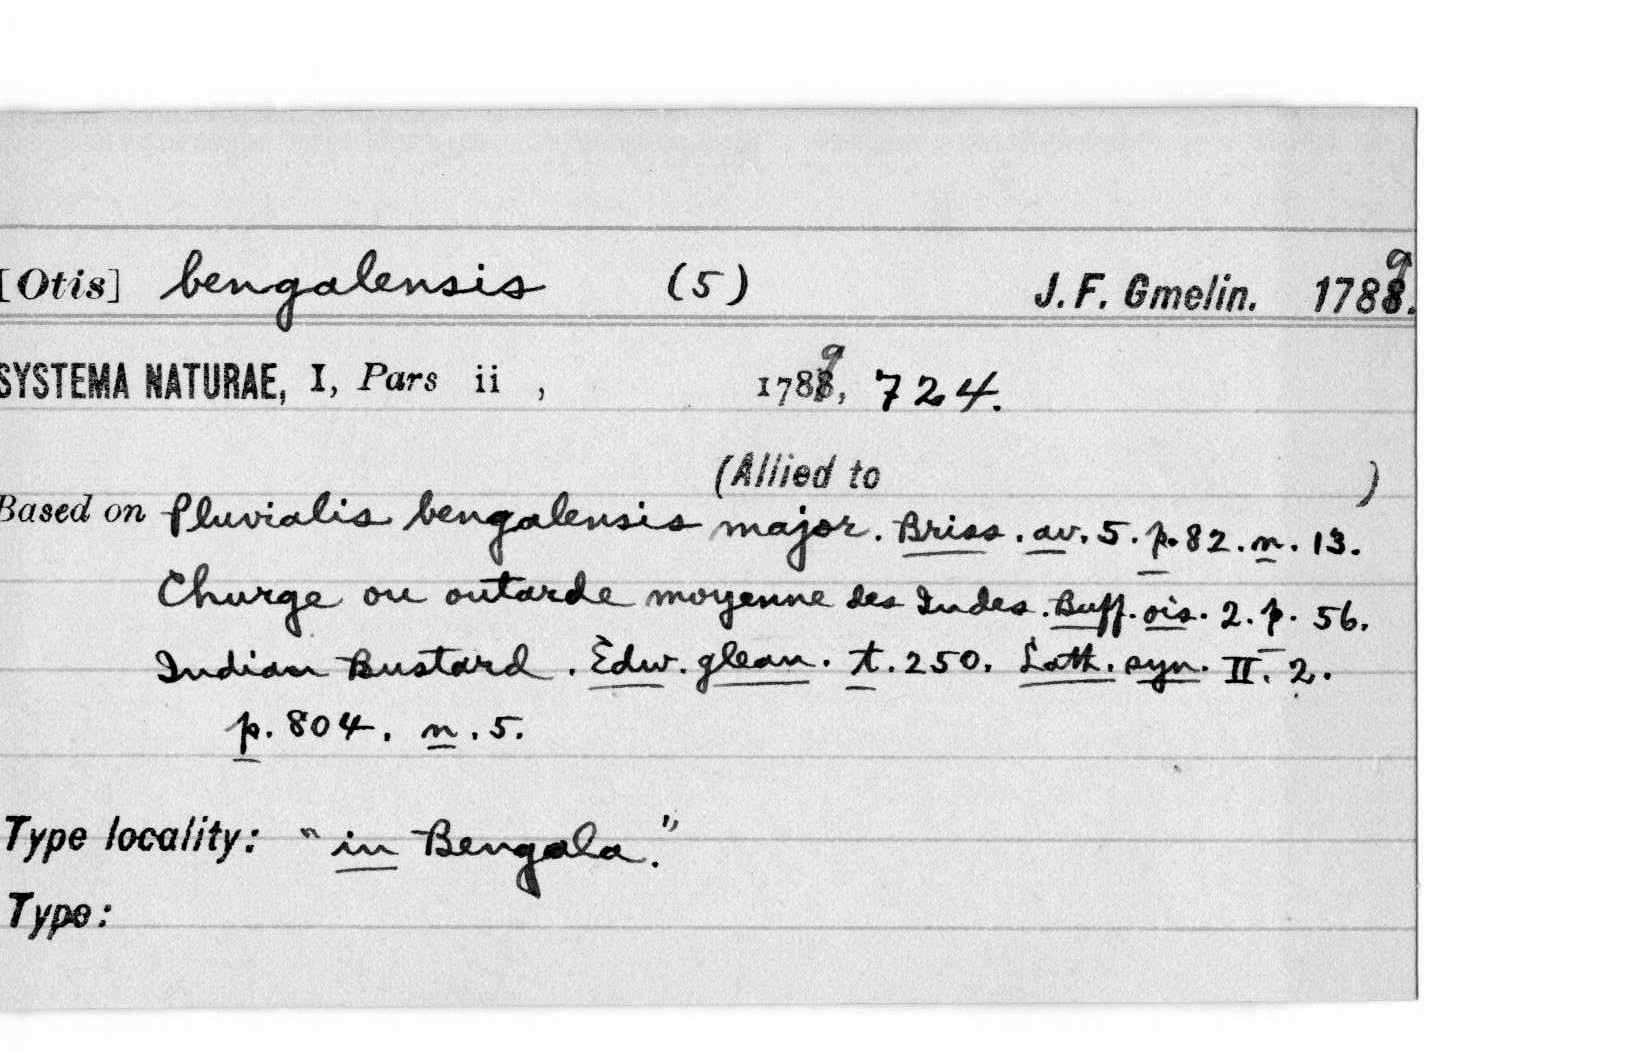 [Otis] bengalensis (5) J. F. Gmelin. 1789.
SYSTEMA NATURAE, I, Pars ii , 1789, 724.
(Allied to )
Based on Pluvialis bengalensis major. Briss. av. 5. p. 82. n. 13.
Churge ou outarde moyenne des Indes. Buff. ois. 2. p. 56.
Indian Bustard. Edw. glean. t. 250. Lath. syn. II. 2.
p. 804. n. 5.
Type locality: "in Bengala."
Type: